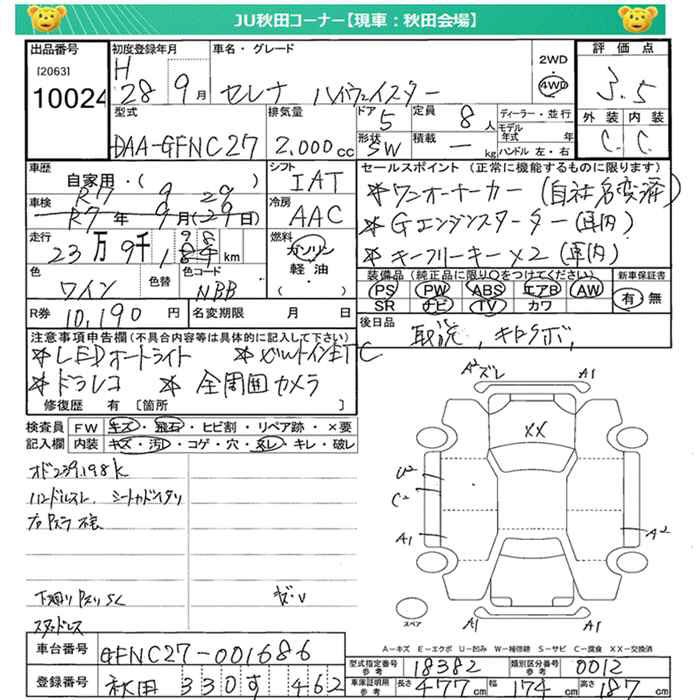 JU秋田コーナー【現車：秋田会場】
出品番号
[2063]
10024
初度登録年月
H 28 9月
車名・グレード
セレナ ハイウェイスター
2WD
4WD
評価点
3.5
外装 内装
C. C.
型式
DAA-GFNC27
排気量
2,000cc
ドア
5
形状
SW
定員
8人
積載
ー kg
ディーラー・並行
モデル年式 年
ハンドル 左・右
車歴
自家用・( )
車検
R7 9 29
R7年 9月(29日)
走行
23万9千198km
シフト
IAT
冷房
AAC
燃料
ガソリン
軽油・
( )
色
ワイン
色替
色コード
NBB
R券
10,190円
名変期限 月 日
セールスポイント（正常に機能するものに限ります）
＊ワンオーナーカー（自社名変済）
＊Gエンジンスターター（車内）
＊キーフリーキー×2（車内）
装備品（純正品に限り○をつけてください）
PS PW ABS エアB AW
SR ナビ TV カワ
新車保証書
有・無
後日品
取説、キロクボ、
注意事項申告欄(不具合内容等は具体的に記入して下さい)
＊LEDオートライト ＊ビルトインETC
＊ドラレコ ＊全周囲カメラ
修復歴 有 [箇所 ]
検査員記入欄
FW キズ・飛石・ヒビ割・リペア跡・×要
内装 キズ・汚・コゲ・穴・スレ・キレ・破レ
オド239,198k
ハンドルスレ、
下廻りPスリSC
スタッドレス
A2ズレ A1
XX
U2
C2
A1
A2
A1 A1
スペア
A－キズ E－エクボ U－凹み W－補修跡 S－サビ C－腐食 XX－交換済
車台番号
GFNC27-001686
登録番号
秋田 330す 462
型式指定番号 参考
18382
類別区分番号 参考
0012
車庫証明用 参考
長さ 477cm 幅 174cm 高さ 187cm